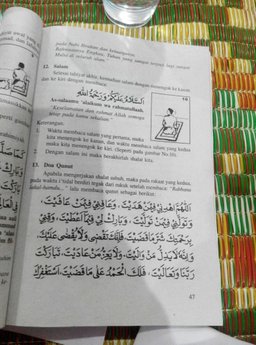 pada Nabi Ibrahim dan keluarganya.
Maha di seluruh alam.
12. Salam
Selesai tahiyat akhir, kemudian salam dengan menengok ke kanan
dan ke kiri dengan membaca:
اَلسَّلَامُ عَلَيْكُمْ وَرَحْمَةُ اللهِ
As-salaamu 'alaikum wa rahmatullaah.
"Keselamatan dan rahmat Allah semoga
tetap pada kamu sekalian."
10
Keterangan:
1. Waktu membaca salam yang pertama, muka
kita menengok ke kanan, dan waktu membaca salam yang kedua
muka kita menengok ke kiri. (Seperti pada gambar No.10).
Dengan salam ini maka berakhirlah shalat kita.
13. Doa Qunut
Apabila mengerjakan shalat subuh, maka pada rakaat yang kedua,
pada waktu i'tidal berdiri tegak dari rukuk setelah membaca: "Rabbanaa
lakal-hamdu..." lalu membaca qunut sebagai berikut:
اَللّٰهُمَّ اهْدِنِيْ فِيْمَنْ هَدَيْتَ، وَعَافِنِيْ فِيْمَنْ عَافَيْتَ،
وَتَوَلَّنِيْ فِيْمَنْ تَوَلَّيْتَ، وَبَارِكْ لِيْ فِيْمَا اَعْطَيْتَ، وَقِنِيْ
بِرَحْمَتِكَ شَرَّ مَا قَضَيْتَ، فَاِنَّكَ تَقْضِيْ وَلَا يُقْضٰى عَلَيْكَ،
وَاِنَّهُ لَا يَذِلُّ مَنْ وَالَيْتَ، وَلَا يَعِزُّ مَنْ عَادَيْتَ، تَبَارَكْتَ
رَبَّنَا وَتَعَالَيْتَ، فَلَكَ الْحَمْدُ عَلٰى مَا قَضَيْتَ، اَسْتَغْفِرُكَ
47